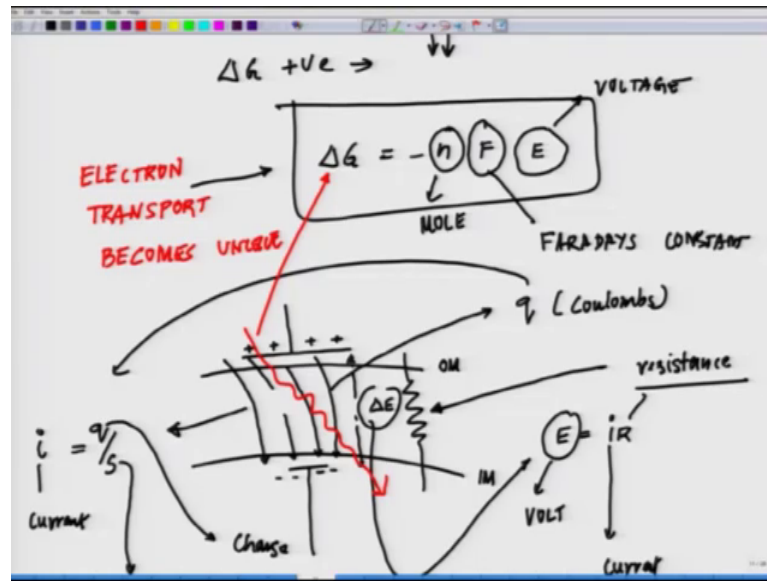 ΔG +ve →
VOLTAGE
ΔG = - n F E
MOLE
FARADAYS CONSTANT
ELECTRON
TRANSPORT
BECOMES UNIQUE
q (Coulombs)
+ + + +
OM
resistance
ΔE
i = q/s
E = iR
IM
VOLT
Current
Charge
Current